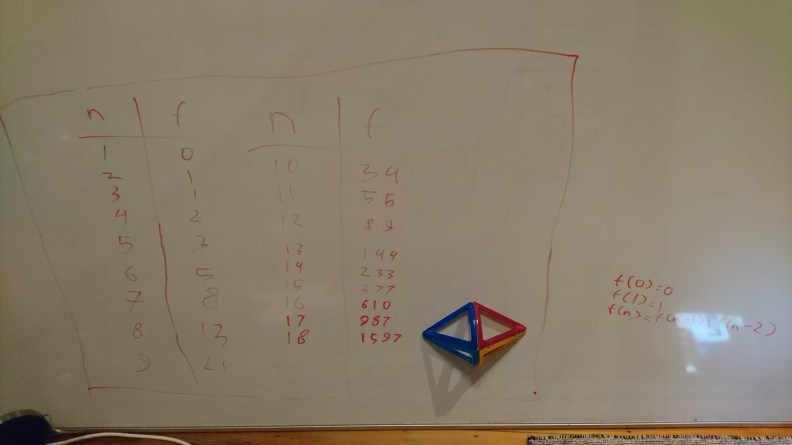 n f
1 0
2 1
3 1
4 2
5 3
6 5
7 8
8 13
9 21
n f
10 34
11 55
12 89
13 144
14 233
15 377
16 610
17 987
18 1597
f(0)=0
f(1)=1
f(n)=f(n-1) f(n-2)